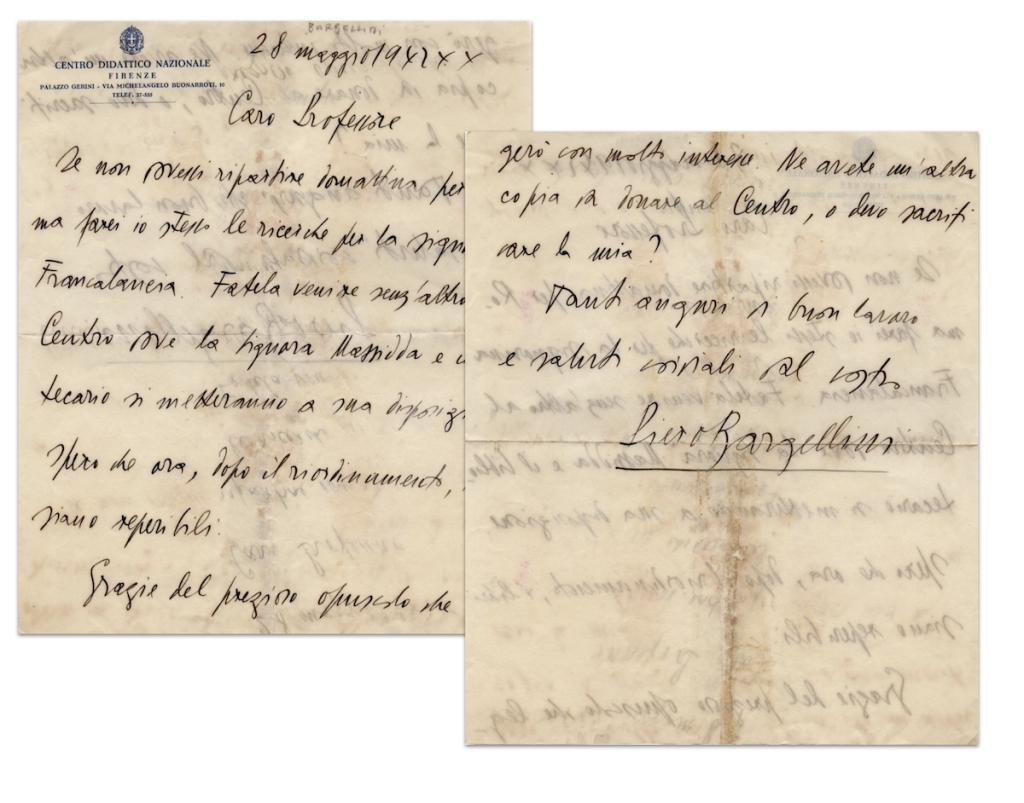 BARGELLINI
28 maggio 1942 XX
CENTRO DIDATTICO NAZIONALE
FIRENZE
PALAZZO GERINI - VIA MICHELANGELO BUONARROTI, 10
TELEF. 27-555
Caro Professore
Se non dovessi ripartire domattina per
ma farei io stesso le ricerche per la sign
Francalanera. Fatela venire senz'altro
Centro ove la Signora Massidda e
tecario si metteranno a sua disposiz
Spero che ora, dopo il riordinamento,
siano reperibili.
Grazie del prezioso opuscolo che
gerò con molto interesse. Ne avete un'altra
copia da donare al Centro, o devo sacrifi
care la mia?
Tanti auguri di buon lavoro
e saluti cordiali dal vostro
Piero Bargellini